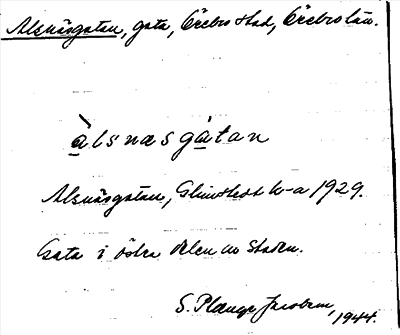 Alsnäsgatan, gata, Örebro stad, Örebro län.
àlsnæsgàtan
Alsnäsgatan, Glimstedt h-a 1929.
Gata i östra delen av staden.
S. Plænge Jacobson, 1944.